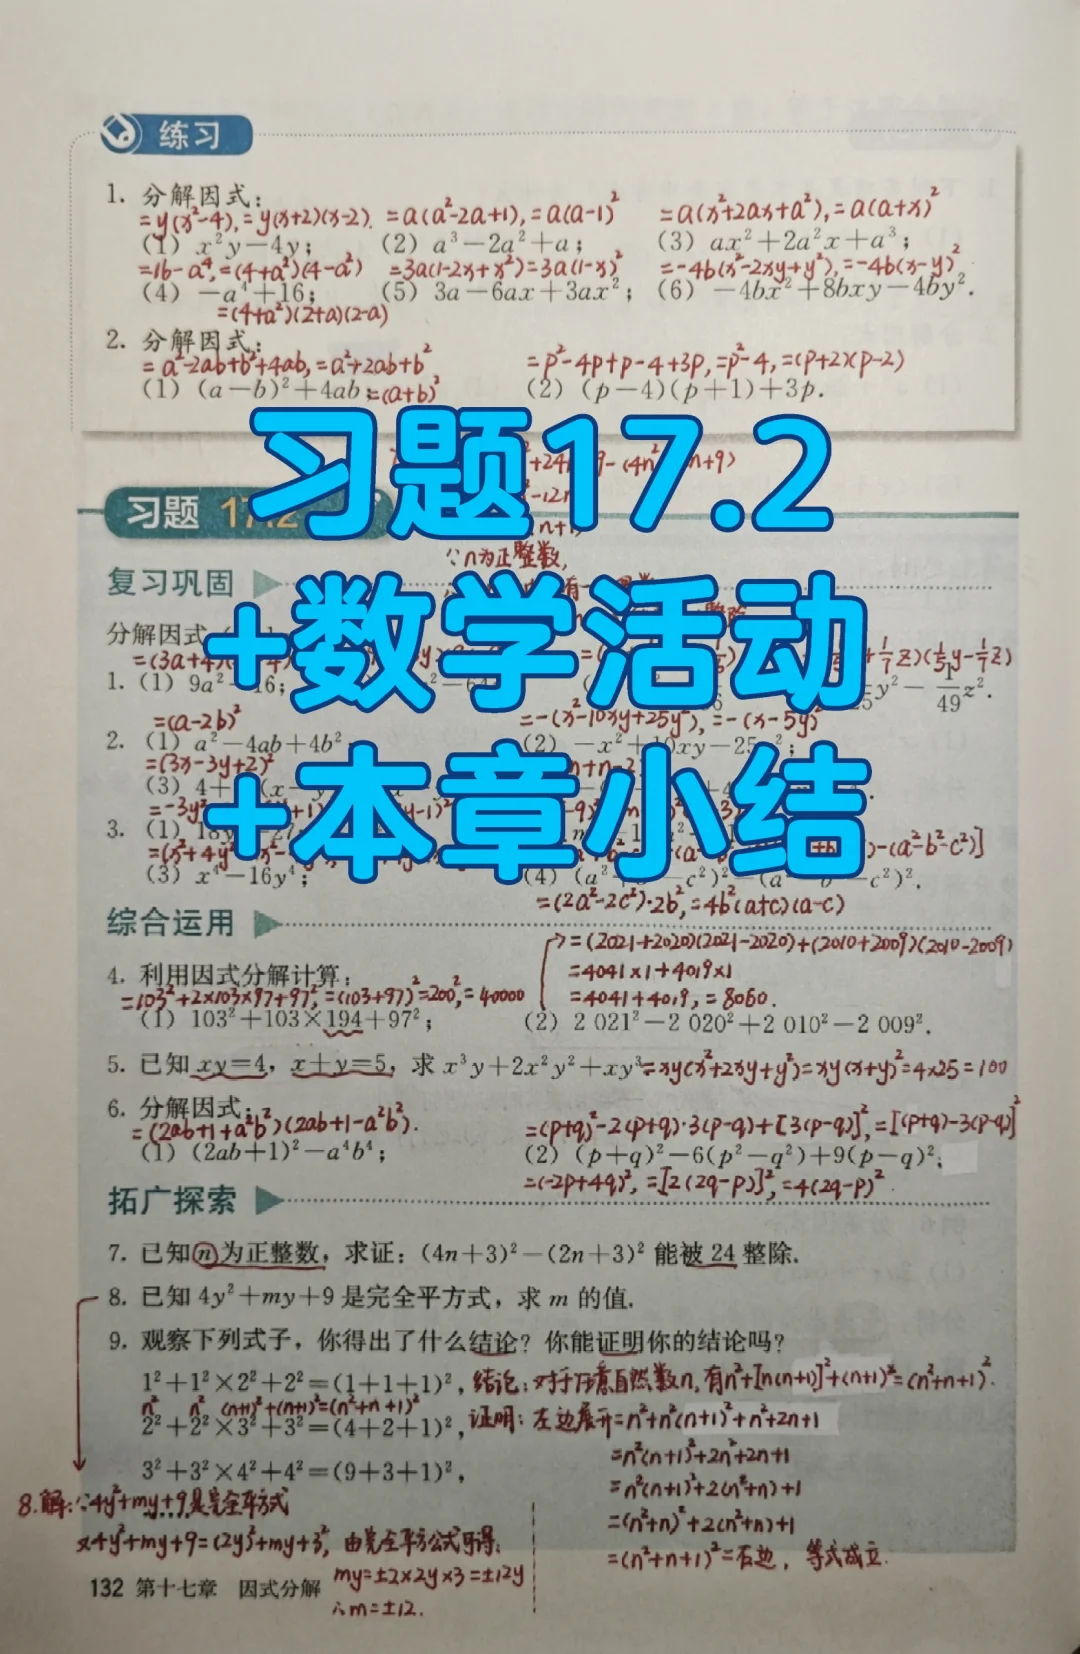 练习
1. 分解因式:
=y(x²-4), =y(x+2)(x-2). =a(a²-2a+1), =a(a-1)² =a(x²+2ax+a²), =a(a+x)²
(1) x²y-4y; (2) a³-2a²+a; (3) ax²+2a²x+a³;
=16-a⁴, =(4+a²)(4-a²) =3a(1-2x+x²)=3a(1-x)² =-4b(x²-2xy+y²), =-4b(x-y)²
(4) -a⁴+16; (5) 3a-6ax+3ax²; (6) -4bx²+8bxy-4by².
=(4+a²)(2+a)(2-a)
2. 分解因式:
=a²-2ab+b²+4ab, =a²+2ab+b² =p²-4p+p-4+3p, =p²-4, =(p+2)(p-2)
(1) (a-b)²+4ab; =(a+b)² (2) (p-4)(p+1)+3p.
习题17.2
+数学活动
+本章小结
习题 17.2
∵n为正整数,
复习巩固
分解因式
=(3a+4)
1. (1) 9a²-16;
(1/5y-1/7z)
y²-1/49z².
=(a-2b)² =-(x²-10xy+25y²), =-(x-5y)²
2. (1) a²-4ab+4b²; (2) -x²+10xy-25y²;
=(3x-3y+2)²
(3) 4+
3. (1)
-(a²-b²-c²)]
(3) x⁴-16y⁴; (4)
=(2a²-2c²)·2b², =4b²(a+c)(a-c)
综合运用
=(2021+2020)(2021-2020)+(2010+2009)(2010-2009)
4. 利用因式分解计算:
=4041×1+4019×1
=103²+2×103×97+97², =(103+97)²=200², =40000 =4041+4019, =8060.
(1) 103²+103×194+97²; (2) 2 021²-2 020²+2 010²-2 009².
5. 已知 xy=4, x+y=5, 求 x³y+2x²y²+xy³ =xy(x²+2xy+y²)=xy(x+y)²=4×25=100
6. 分解因式:
=(2ab+1+a²b²)(2ab+1-a²b²). =(p+q)²-2(p+q)·3(p-q)+[3(p-q)]², =[(p+q)-3(p-q)]²
(1) (2ab+1)²-a⁴b⁴; (2) (p+q)²-6(p²-q²)+9(p-q)²;
=(-2p+4q)², =[2(2q-p)]², =4(2q-p)².
拓广探索
7. 已知n为正整数, 求证: (4n+3)²-(2n+3)² 能被 24 整除.
8. 已知 4y²+my+9 是完全平方式, 求 m 的值.
9. 观察下列式子, 你得出了什么结论? 你能证明你的结论吗?
1²+1²×2²+2²=(1+1+1)², 结论: 对于任意自然数n, 有n²+[n(n+1)]²+(n+1)²=(n²+n+1)².
n² n² (n+1)²+(n+1)²=(n²+n+1)²
2²+2²×3²+3²=(4+2+1)², 证明: 左边展开=n²+n²(n+1)²+n²+2n+1
=n²(n+1)²+2n²+2n+1
3²+3²×4²+4²=(9+3+1)²,
=n²(n+1)²+2(n²+n)+1
8.解: ∵4y²+my+9是完全平方式
=(n²+n)²+2(n²+n)+1
又4y²+my+9=(2y)²+my+3², 由完全平方公式可得:
=(n²+n+1)²=右边, 等式成立.
my=±2×2y×3=±12y
132 第十七章 因式分解
∴m=±12.